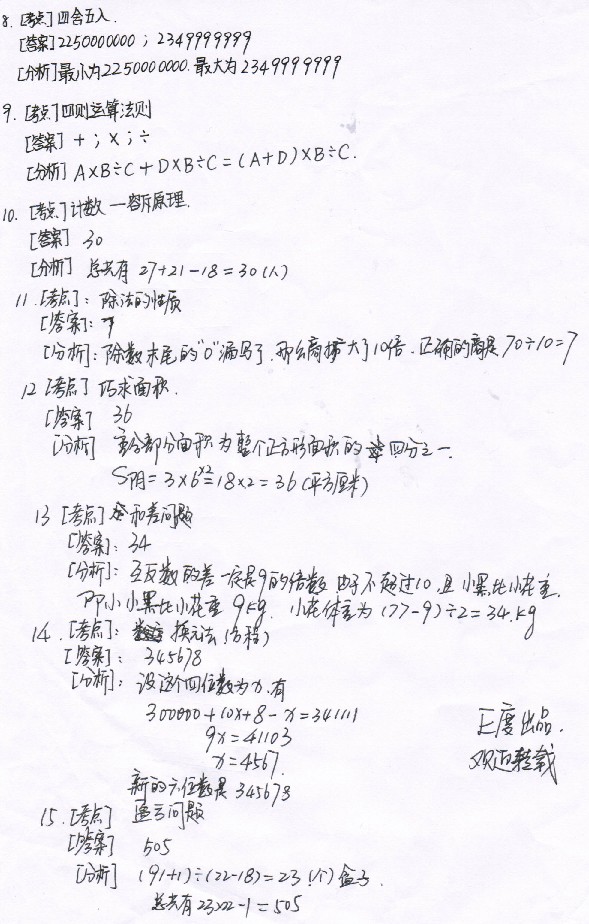 8. [考点] 四舍五入.
[答案] 2250000000 ; 2349999999
[分析] 最小为2250000000. 最大为2349999999
9. [考点] 四则运算法则
[答案] + ; × ; ÷
[分析] A×B÷C + D×B÷C = (A+D)×B÷C.
10. [考点] 计数 — 容斥原理.
[答案] 30
[分析] 总共有 27+21-18=30 (人)
11. [考点]: 除法的性质
[答案]: 7
[分析]: 除数末尾的"0"漏写了, 那么商扩大了10倍. 正确的商是 70÷10=7
12 [考点] 巧求面积.
[答案] 36
[分析] 重合部分面积为整个正方形面积的四分之一.
S阴=3×6×2=18×2=36 (平方厘米)
13 [考点] 和差问题
[答案]: 34
[分析]: 互反数的差一定是9的倍数 由于不超过10, 且小黑比小花重.
即小小黑比小花重 9kg. 小花体重为 (77-9)÷2=34.kg
14. [考点]: 换元法 (方程)
[答案]: 345678
[分析]: 设这个四位数为x. 有
300000+10x+8-x=341111
9x=41103
x=4567.
新的六位数是 345678
正度出品.
欢迎转载
15. [考点] 盈亏问题
[答案] 505
[分析] (91+1)÷(22-18)=23 (个) 盒子.
总共有 23×22-1=505